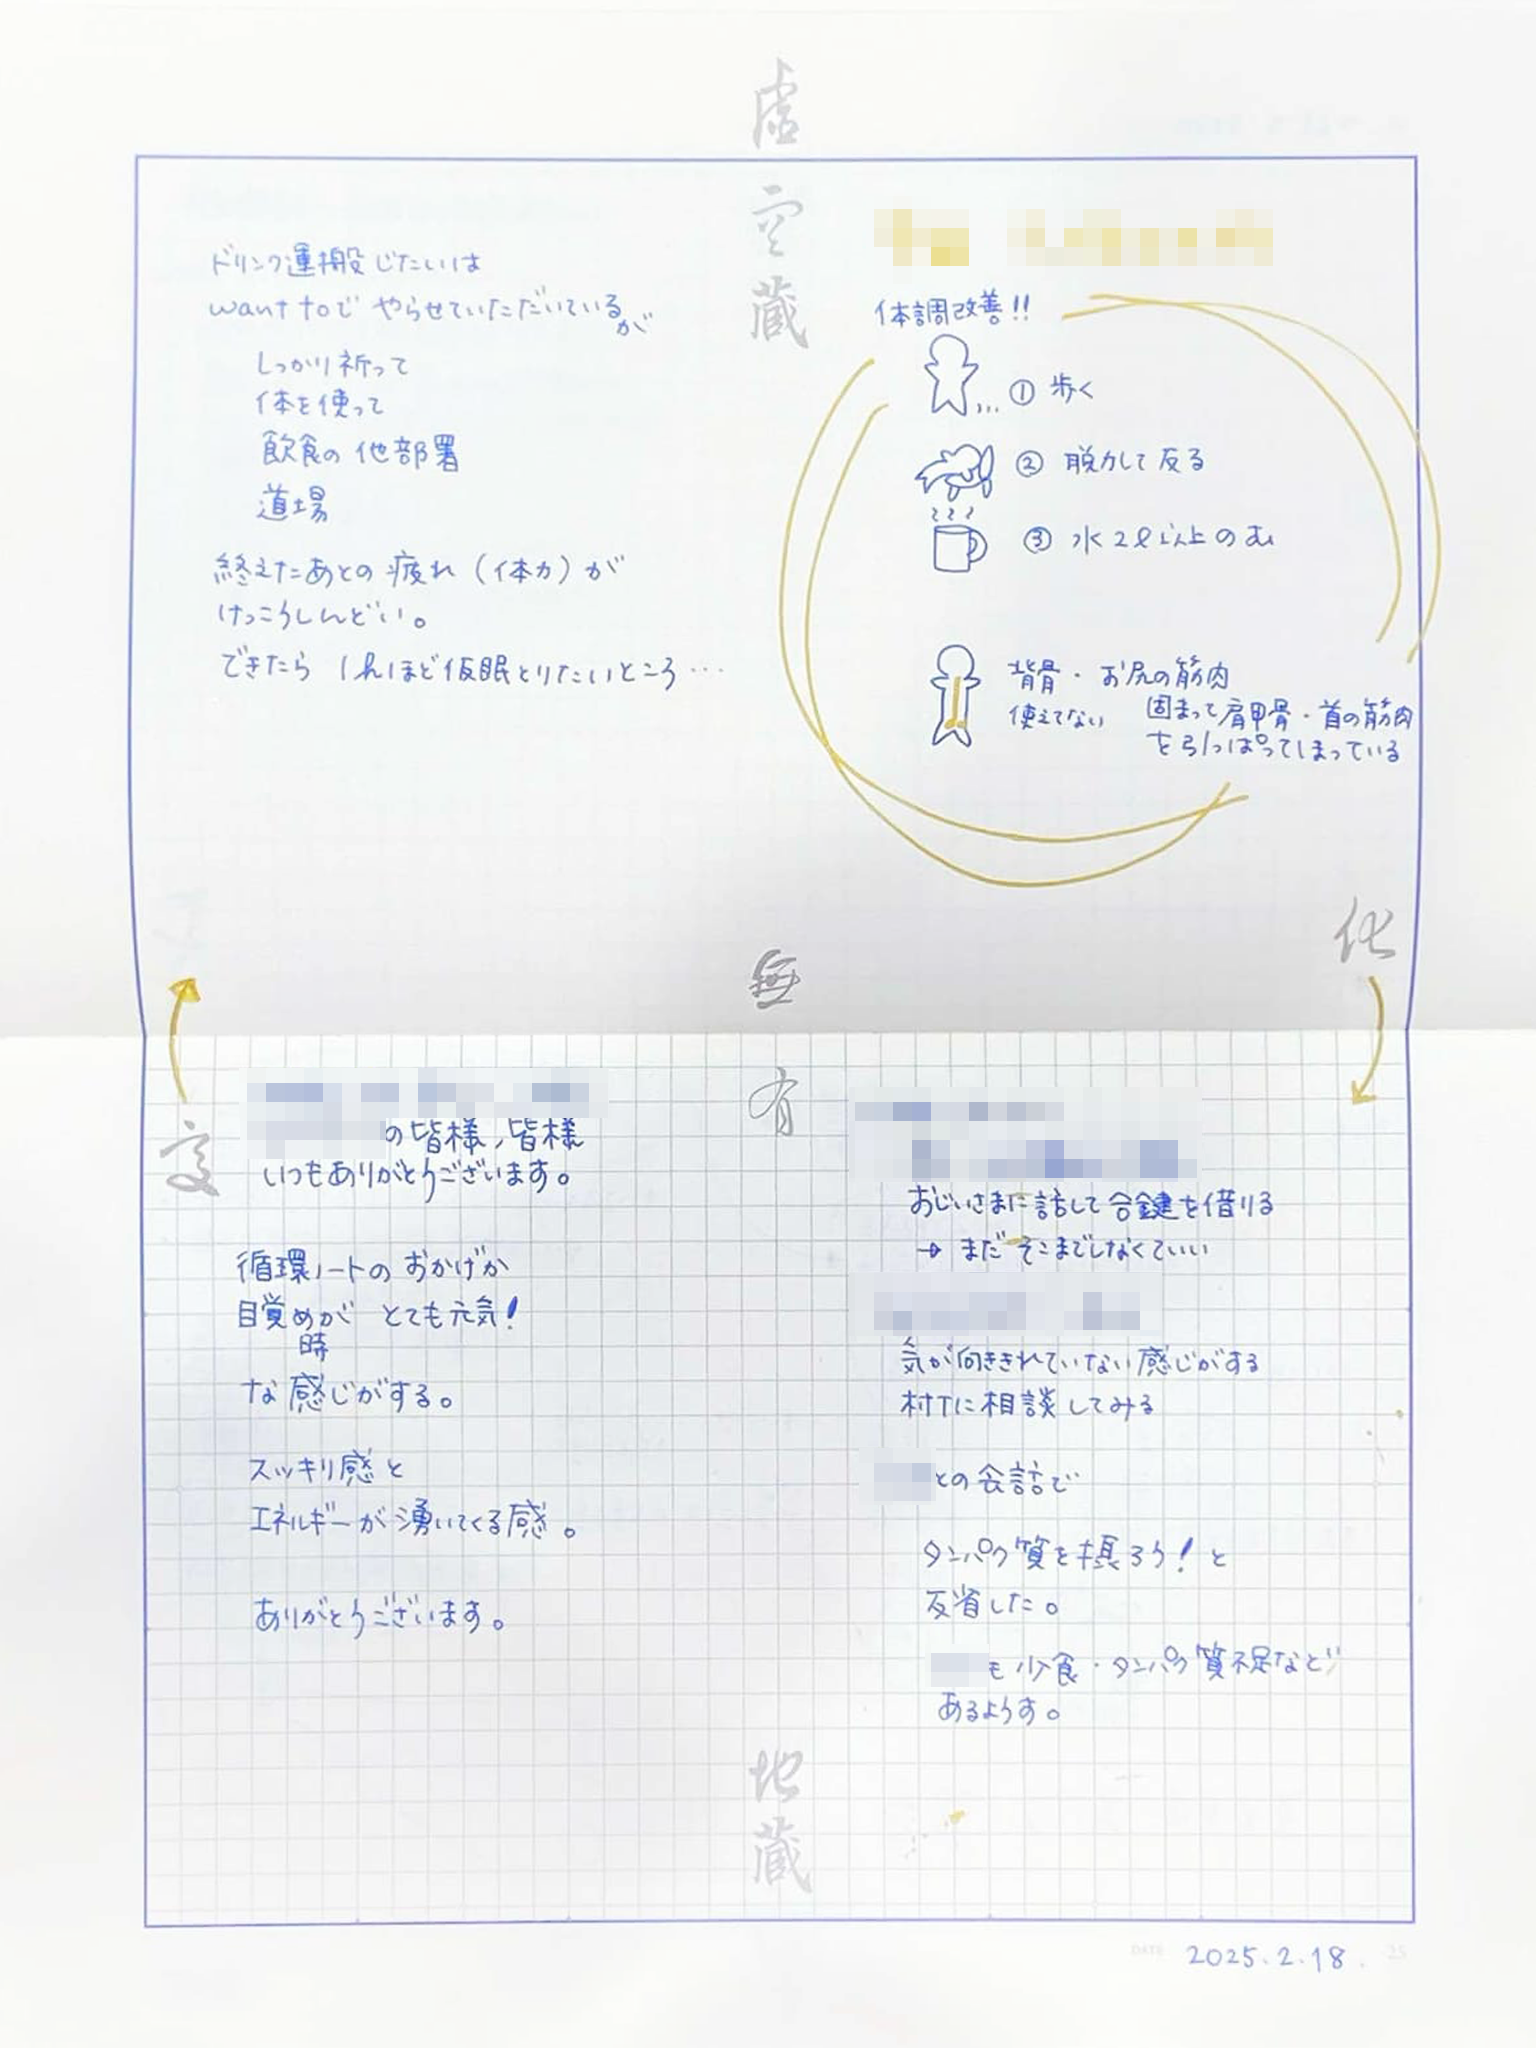 虚
空
蔵
ドリンク運搬じたいは
want toで やらせていただいているが
しっかり祈って
体を使って
飲食の他部署
道場
終えたあとの疲れ（体力）が
けっこうしんどい。
できたら 1hほど仮眠とりたいところ…
体調改善!!
… ① 歩く
② 脱力して反る
③ 水2ℓ以上のむ
背骨・お尻の筋肉
使えてない 固まって肩甲骨・首の筋肉
を引っぱってしまっている
化
無
有
変
の皆様、皆様
いつもありがとうございます。
循環ノートのおかげか
目覚めが とても元気!
時
な感じがする。
スッキリ感と
エネルギーが湧いてくる感。
ありがとうございます。
おじいさまに話して合鍵を借りる
→ まだそこまでしなくていい
気が向ききれていない感じがする
村Tに相談してみる
との会話で
タンパク質を摂ろう!と
反省した。
も少食・タンパク質不足など
あるようす。
地
蔵
DATE 2025.2.18. 25